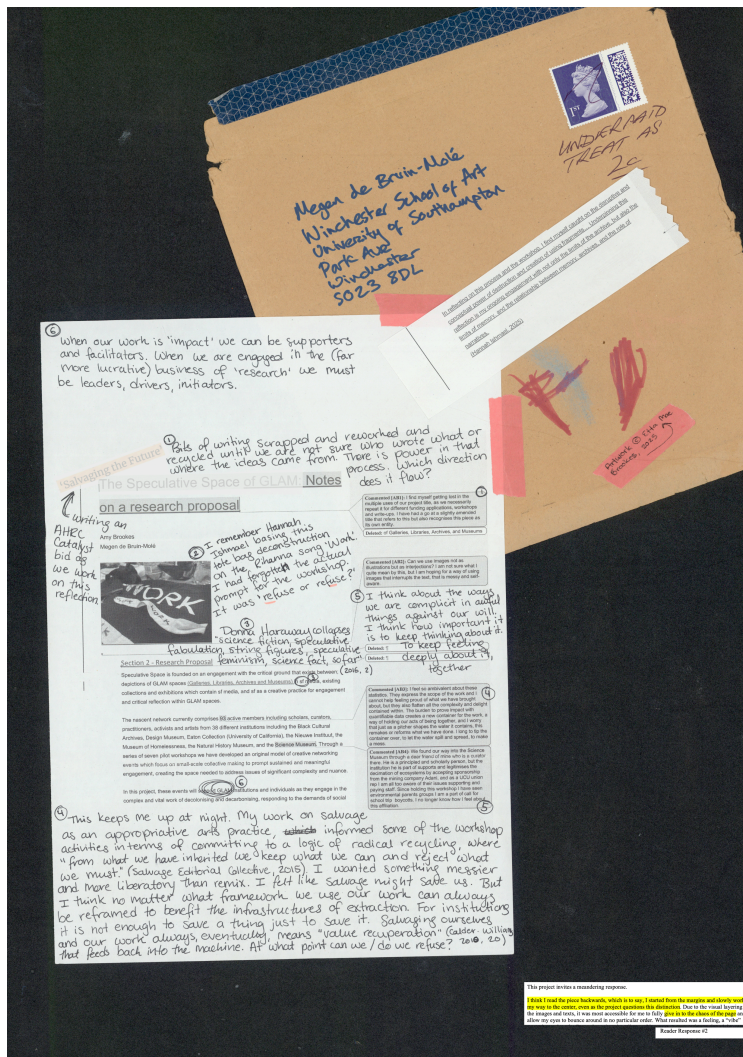 1ST
UNDERPAID
TREAT AS
2c
Megen de Bruin-Molé
Winchester School of Art
University of Southampton
Park Ave
Winchester
SO23 8DL
In reflecting on this process and the workshop, I find myself caught on the disruptive and
conceptual power of destruction and creation of using fragments. Underpinning this
reflection is my ongoing engagement with not only the limits of the archive, but also the
limits of memory, and the relationship between memory, archives, and the role of
narratives.
(Hannah Ishmael, 2025)
Artwork © Etta Mae
Brookes, 2025
6
When our work is 'impact' we can be supporters
and facilitators. When we are engaged in the (far
more lucrative) business of 'research' we must
be leaders, drivers, initiators.
1 Bits of writing scrapped and reworked and
recycled until we are not sure who wrote what or
where the ideas came from. There is power in that
process. Which direction
does it flow?
'Salvaging the Future'
The Speculative Space of GLAM: Notes
on a research proposal
Amy Brookes
Megen de Bruin-Molé
Writing an
AHRC
Catalyst
bid as
we work
on this
reflection
2 I remember Hannah
Ishmael basing this
tote bag deconstruction
on the Rihanna song 'Work'
I had forgotten the actual
prompt for the workshop.
It was 'refuse or refuse?'
WORK
WORK
3
Donna Haraway collapses
"science fiction, speculative
fabulation, string figures, speculative
feminism, science fact, so far"
(2016, 2)
Commented [AB1]: I find myself getting lost in the
multiple uses of our project title, as we necessarily
repeat it for different funding applications, workshops
and write-ups. I have had a go at a slightly amended
title that refers to this but also recognises this piece as
its own entity.
1
Deleted: of Galleries, Libraries, Archives, and Museums
Commented [AB2]: Can we use images not as
illustrations but as interjections? I am not sure what I
quite mean by this, but I am hoping for a way of using
images that interrupts the text, that is messy and self-
aware.
5 I think about the ways
we are complicit in awful
things against our will.
I think how important it
is to keep thinking about it.
Deleted: ¶
To keep feeling
Deleted: ¶
deeply about it,
together
Section 2 - Research Proposal
Speculative Space is founded on an engagement with the critical ground that exists between:
depictions of GLAM spaces (Galleries, Libraries, Archives and Museums) in media, existing
collections and exhibitions which contain of media, and of as a creative practice for engagement
and critical reflection within GLAM spaces.
The nascent network currently comprises 93 active members including scholars, curators,
practitioners, activists and artists from 38 different institutions including the Black Cultural
Archives, Design Museum, Eaton Collection (University of California), the Nieuwe Instituut, the
Museum of Homelessness, the Natural History Museum, and the Science Museum. Through a
series of seven pilot workshops we have developed an original model of creative networking
events which focus on small-scale collective making to prompt sustained and meaningful
engagement, creating the space needed to address issues of significant complexity and nuance.
6
In this project, these events will GLAM institutions and individuals as they engage in the
complex and vital work of decolonising and decarbonising, responding to the demands of social
Commented [AB3]: I feel so ambivalent about these
statistics. They express the scope of the work and I
cannot help feeling proud of what we have brought
about, but they also flatten all the complexity and delight
contained within. The burden to prove impact with
quantifiable data creates a new container for the work, a
way of holding our acts of being together, and I worry
that just as a pitcher shapes the water it contains, this
remakes or reforms what we have done. I long to tip the
container over, to let the water spill and spread, to make
a mess.
4
Commented [AB4]: We found our way into the Science
Museum through a dear friend of mine who is a curator
there. He is a principled and scholarly person, but the
institution he is part of supports and legitimises the
decimation of ecosystems by accepting sponsorship
from the mining company Adani, and as a UCU union
rep I am all too aware of their issues supporting and
paying staff. Since holding this workshop I have seen
environmental parents groups I am a part of call for
school trip boycotts. I no longer know how I feel about
this affiliation.
5
4 This keeps me up at night. My work on salvage
as an appropriative arts practice, which informed some of the workshop
activities in terms of committing to a logic of radical recycling, where
"from what we have inherited we keep what we can and reject what
we must." (Salvage Editorial Collective, 2015) I wanted something messier
and more liberatory than remix. I felt like salvage might save us. But
I think no matter what framework we use our work can always
be reframed to benefit the infrastructures of extraction. For institutions
it is not enough to save a thing just to save it. Salvaging ourselves
and our work always, eventually, means "value recuperation" (Calder-Williams
that feeds back into the machine. At what point can we / do we refuse? 2010, 20)
This project invites a meandering response.
I think I read the piece backwards, which is to say, I started from the margins and slowly wor
my way to the center, even as the project questions this distinction. Due to the visual layering
the images and texts, it was most accessible for me to fully give in to the chaos of the page an
allow my eyes to bounce around in no particular order. What resulted was a feeling, a "vibe"
Reader Response #2